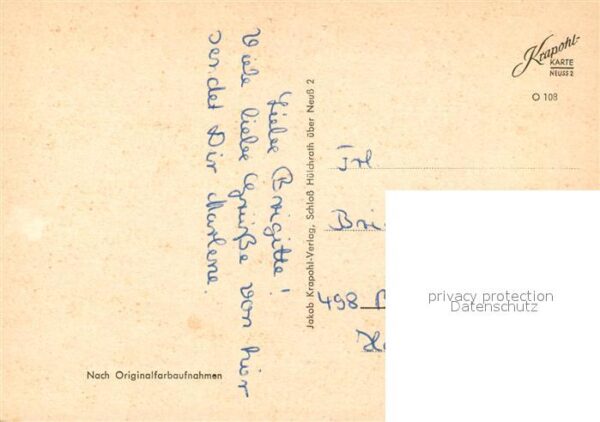 Liebe Brigitte!
Viele liebe Grüße von hier
sendet Dir Marlene.
Jakob Krapohl-Verlag, Schloß Hülchrath über Neuß 2
Nach Originalfarbaufnahmen
Krapohl-
KARTE
NEUSS 2
O 108
Frl
Bri
498
privacy protection
Datenschutz